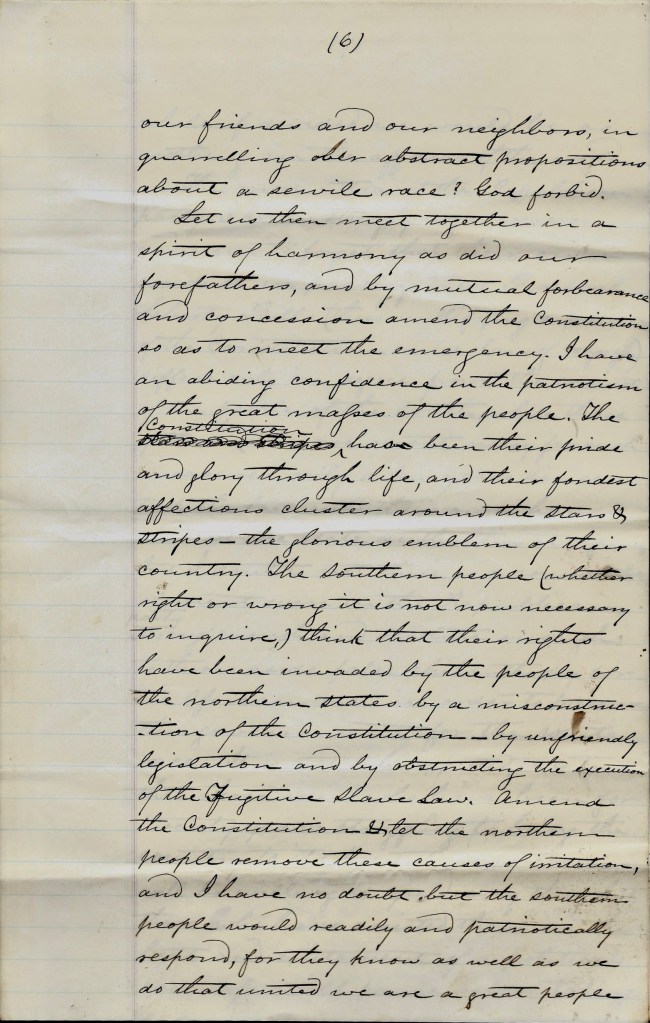 (6)
our friends and our neighbors, in
quarrelling over abstract propositions
about a servile race? God forbid.
Let us then meet together in a
spirit of harmony as did our
forefathers, and by mutual forbearance
and concession amend the Constitution
so as to meet the emergency. I have
an abiding confidence in the patriotism
of the great masses of the people. The
Constitution
stars and stripes has been their pride
and glory through life, and their fondest
affections cluster around the stars &
stripes – the glorious emblem of their
country. The southern people (whether
right or wrong it is not now necessary
to inquire,) think that their rights
have been invaded by the people of
the northern states by a misconstruc-
-tion of the Constitution – by unfriendly
legislation and by obstructing the execution
of the Fugitive Slave Law. Amend
the Constitution & let the northern
people remove these causes of irritation,
and I have no doubt but the southern
people would readily and patriotically
respond, for they know as well as we
do that united we are a great people